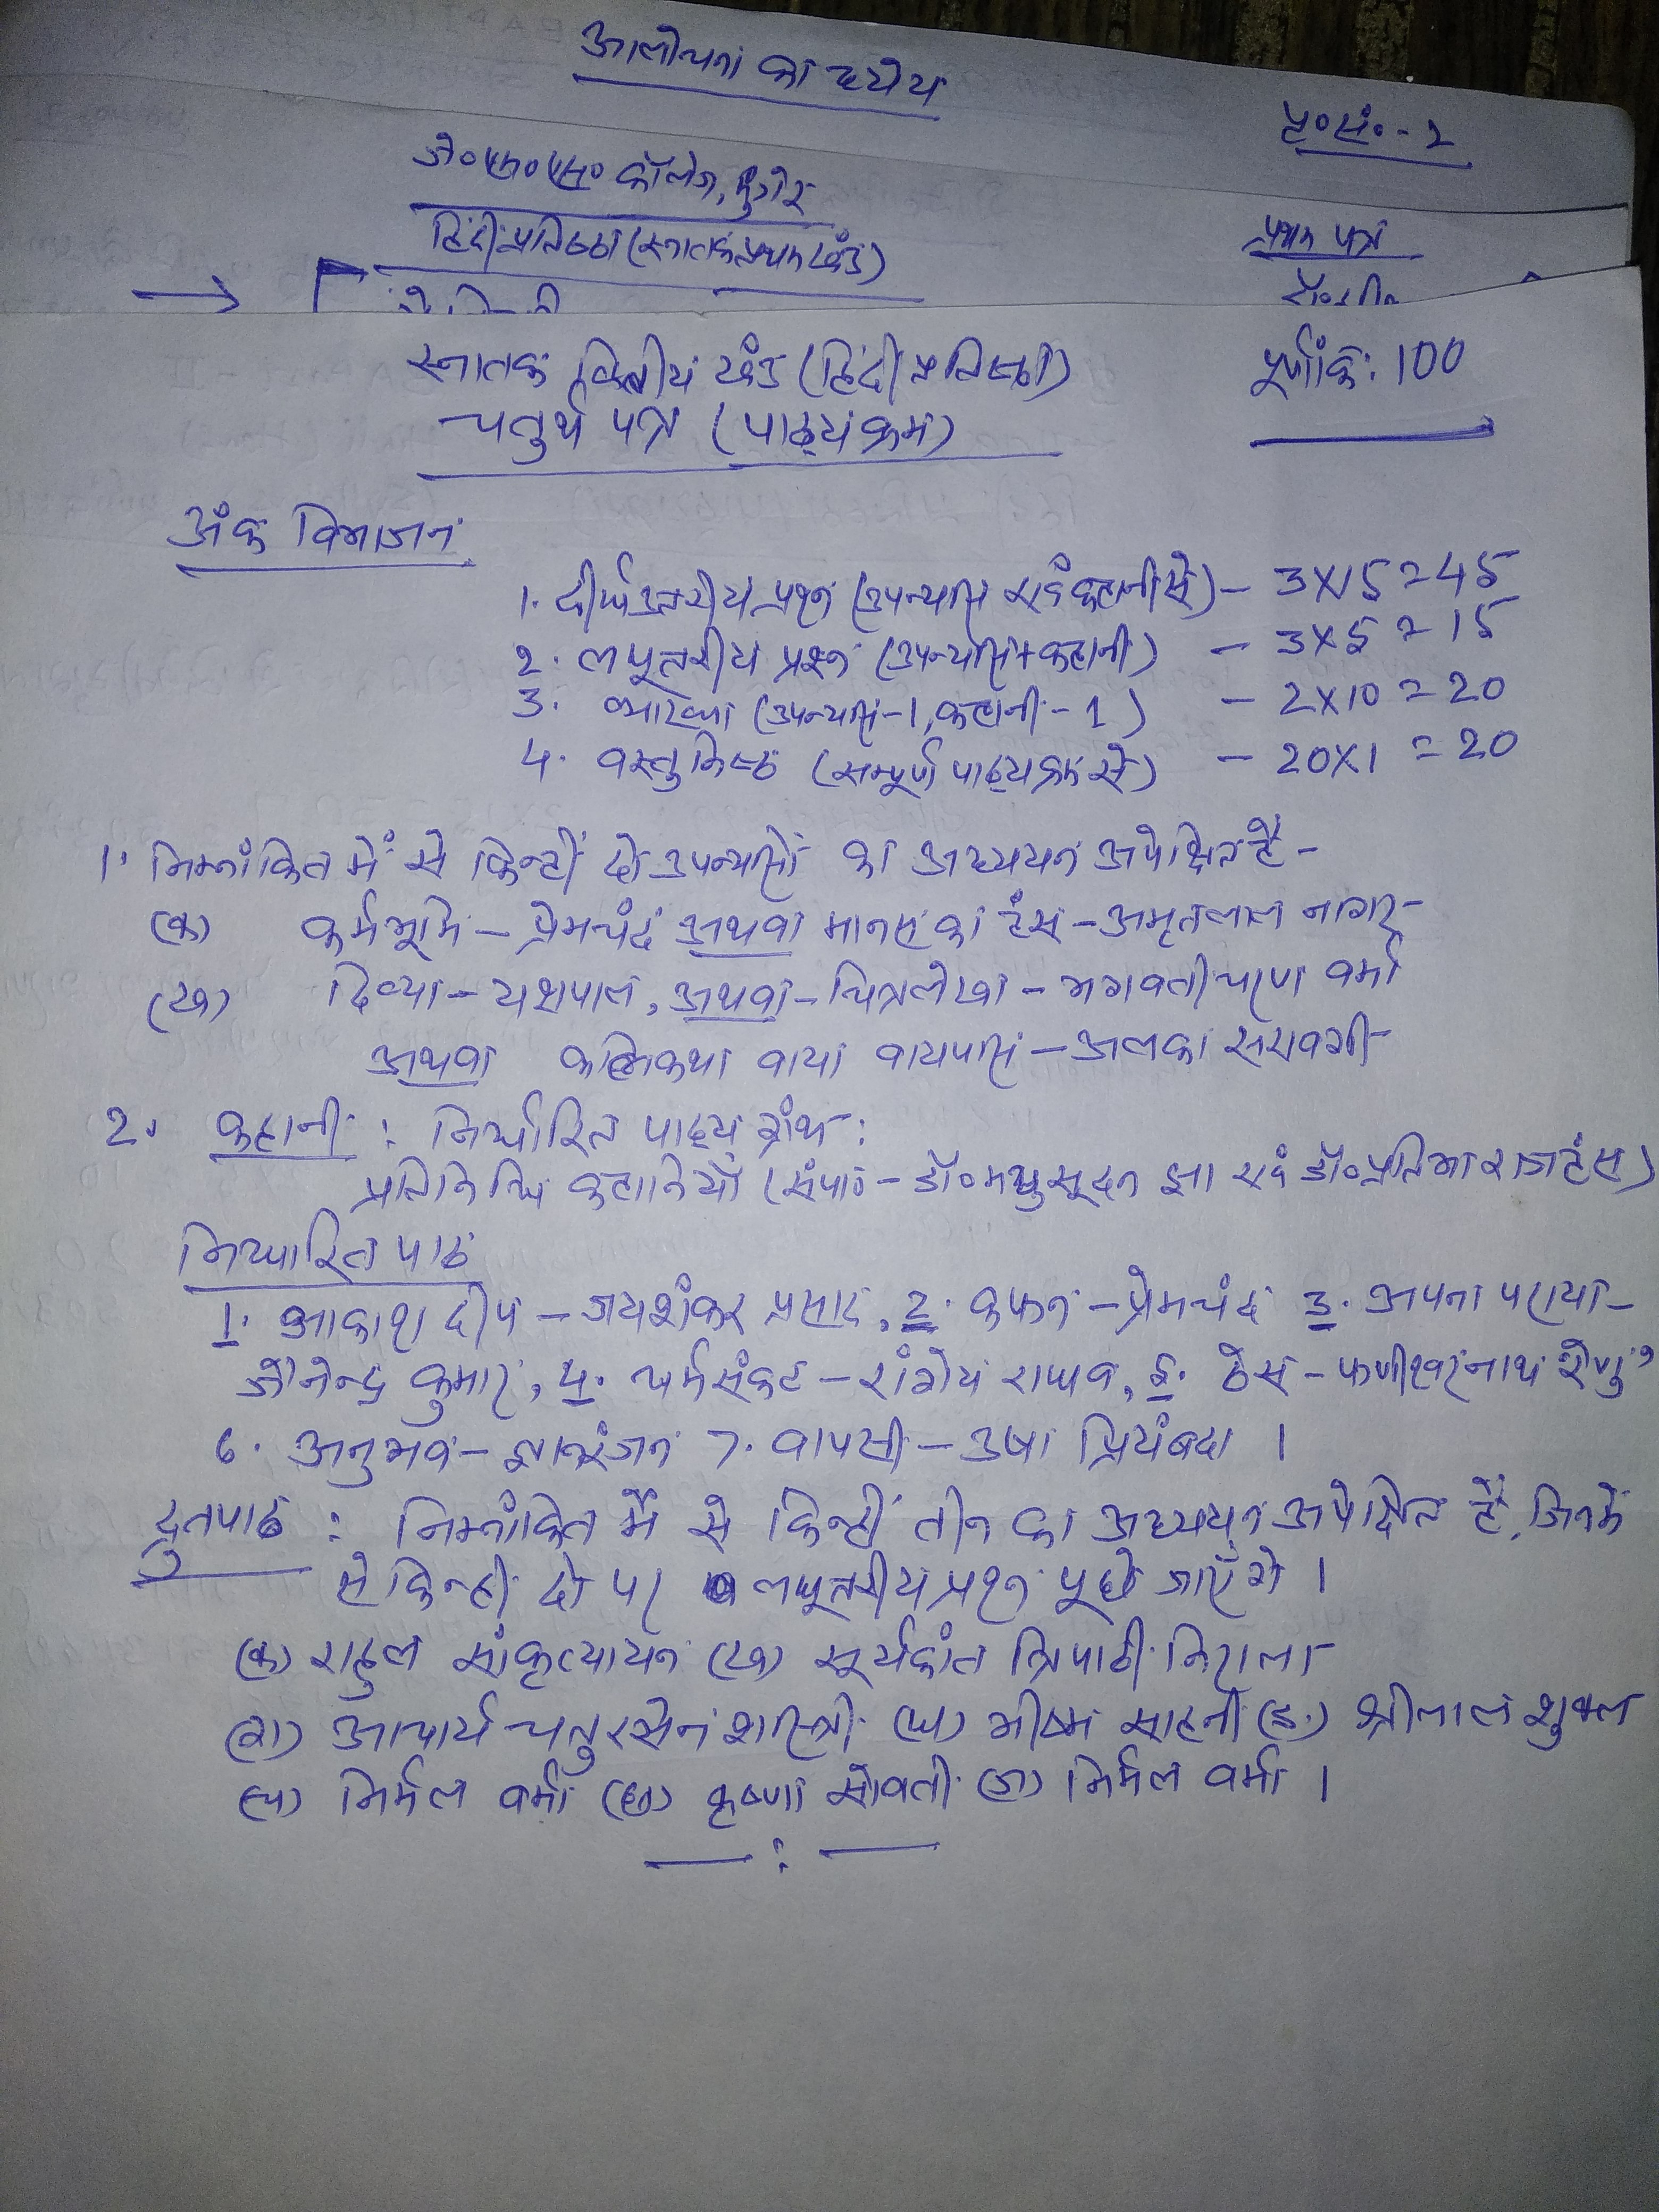 आलोचना का ध्येय
पृ०सं०-2
जे०एम०एस० कॉलेज, मुंगेर
हिंदी प्रतिष्ठा (स्नातक प्रथम खंड)
प्रथम पत्र
स्नातक द्वितीय खंड (हिंदी प्रतिष्ठा)
पूर्णांक: 100
चतुर्थ पत्र (पाठ्यक्रम)
अंक विभाजन
1. दीर्घउत्तरीय प्रश्न (उपन्यास एवं कहानी से) - 3×15=45
2. लघूत्तरीय प्रश्न (उपन्यास+कहानी) - 3×5=15
3. व्याख्या (उपन्यास-1, कहानी-1) - 2×10=20
4. वस्तुनिष्ठ (सम्पूर्ण पाठ्यक्रम से) - 20×1=20
1. निम्नांकित में से किन्हीं दो उपन्यासों का अध्ययन अपेक्षित है-
(क) कर्मभूमि - प्रेमचंद अथवा मानस का हंस - अमृतलाल नागर
(ख) दिव्या - यशपाल, अथवा - चित्रलेखा - भगवतीचरण वर्मा
अथवा कलिकथा वाया बायपास - अलका सरावगी
2. कहानी: निर्धारित पाठ्य ग्रंथ:
प्रतिनिधि कहानियाँ (संपा० - डॉ० मधुसूदन झा एवं डॉ० प्रतिभा राजहंस)
निर्धारित पाठ
1. आकाश दीप - जयशंकर प्रसाद, 2. कफन - प्रेमचंद 3. अपना पराया -
जैनेन्द्र कुमार, 4. धर्मसंकट - रांगेय राघव, 5. ठेस - फणीश्वरनाथ रेणु,
6. अनुभव - ज्ञानरंजन 7. वापसी - उषा प्रियंबदा ।
द्रुतपाठ: निम्नांकित में से किन्हीं तीन का अध्ययन अपेक्षित है, जिनमें
से किन्हीं दो पर लघूत्तरीय प्रश्न पूछे जाएँगे ।
(क) राहुल सांकृत्यायन (ख) सूर्यकांत त्रिपाठी निराला
(ग) आचार्य चतुरसेन शास्त्री (घ) भीष्म साहनी (ङ) श्रीलाल शुक्ल
(च) निर्मल वर्मा (छ) कृष्णा सोबती (ज) निर्मल वर्मा ।